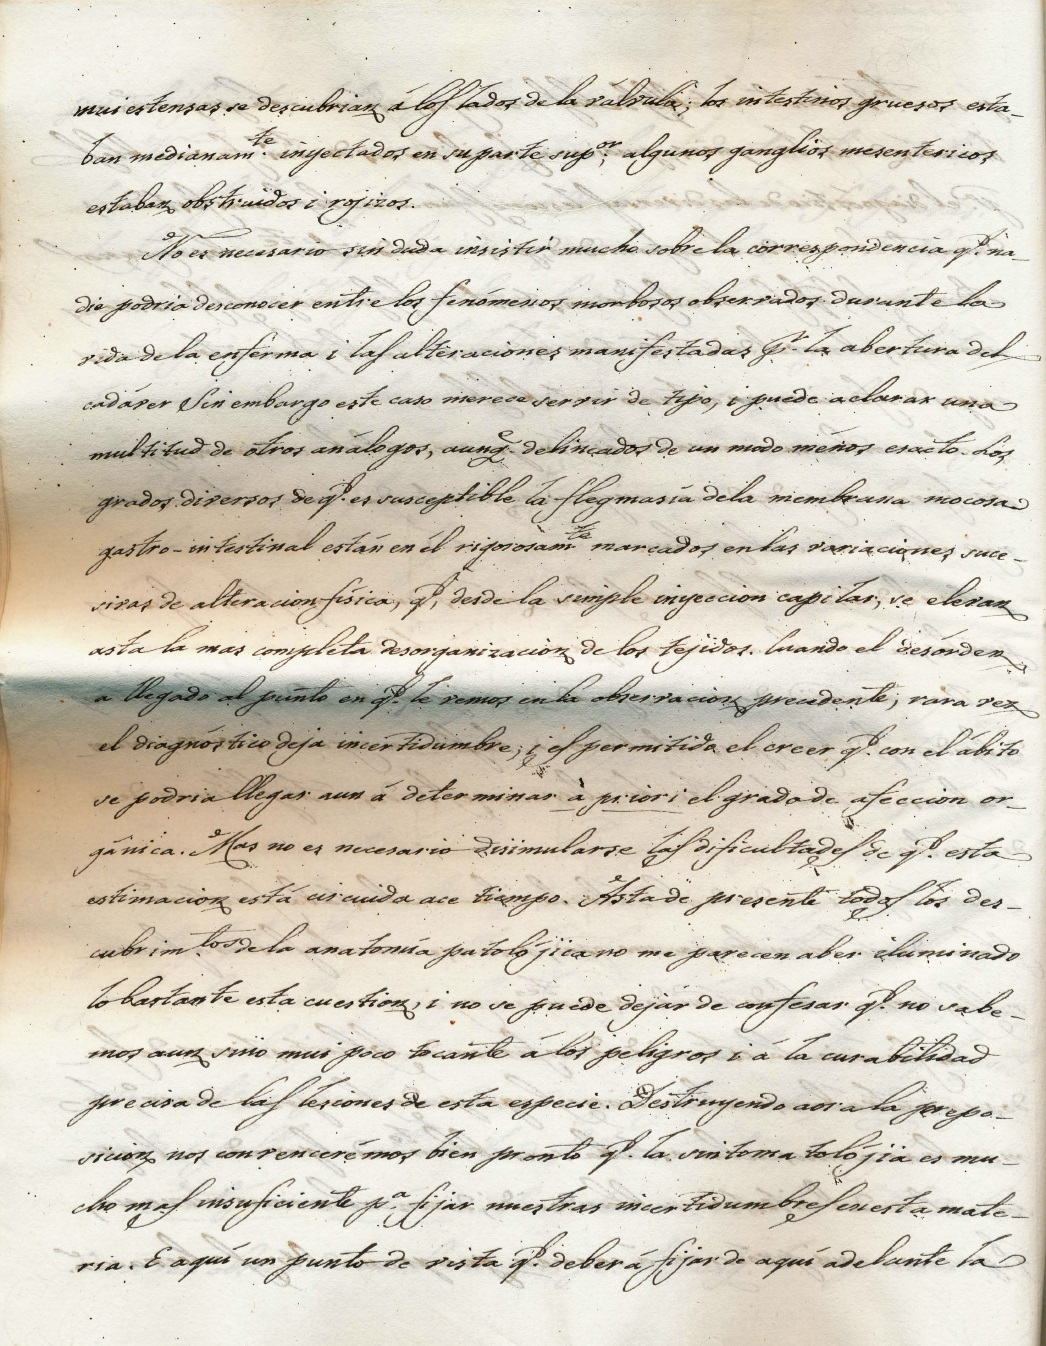 mui estensas se descubrian á los lados de la válvula; los intestinos gruesos esta-
ban medianam.te inyectados en su parte sup.or; algunos ganglios mesentericos
estaban obstruidos i rojizos.
No es necesario sin duda insistir mucho sobre la correspondencia q.e na-
die podria desconocer entre los fenómenos morbosos observados durante la
vida de la enferma i las alteraciones manifestadas p.r la abertura del
cadáver Sin embargo este caso merece servir de tipo, i puede aclarar una
multitud de otros análogos, aunq.e delineados de un modo ménos esacto. Los
grados diversos de q.e es susceptible la flegmasía de la membrana mocosa
gastro-intestinal están en él rigorosam.te marcados en las variaciones suce-
sivas de alteracion física, q.e, desde la simple inyeccion capilar, se elevan
asta la mas completa desorganizacion de los tejidos. Cuando el desórden
a llegado al punto en q.e le vemos en la observacion precedente, rara vez
el diagnóstico deja incertidumbre; i es permitido el creer q.e con el ábito
se podria llegar aun á determinar à priori el grado de afeccion or-
gánica. Mas no es necesario disimularse las dificultades de q.e esta
estimacion está circuida ace tiempo. Asta de presente todos los des-
cubrim.tos de la anatomía patolójica no me parecen aber iluminado
lo bastante esta cuestion; i no se puede dejár de confesar q.e no sabe-
mos aun sino mui poco tocante á los peligros i á la curabilidad
precisa de las lesiones de esta especie. Destruyendo aora la prepo-
sicion nos convencerémos bien pronto q.e la sintomatolójia es mu-
cho mas insuficiente p.a fijar nuestras incertidumbres en esta mate-
ria. E aquí un punto de vista q.e deberá fijar de aquí adelante la